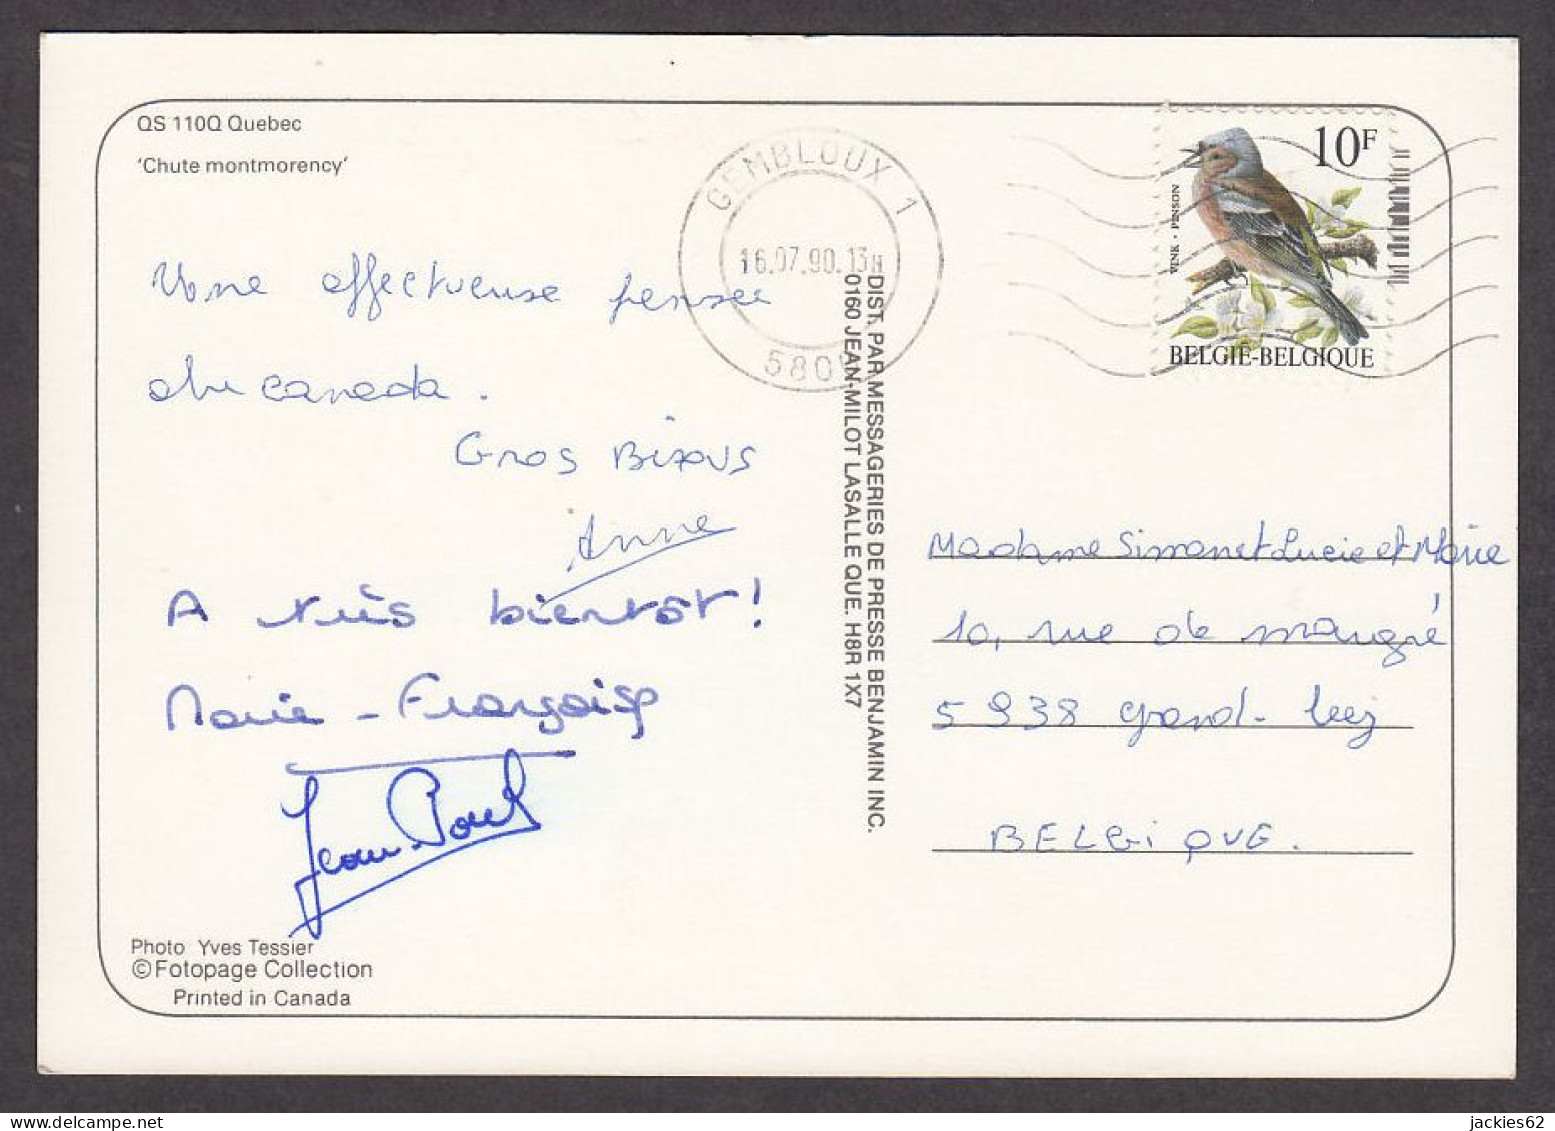 QS 110Q Quebec
'Chute montmorency'
Une affectueuse pensée
du canada.
Gros Bisous
Anne
A très bientôt!
Marie-Françoise
Jean Paul
Photo Yves Tessier
©Fotopage Collection
Printed in Canada
DIST. PAR MESSAGERIES DE PRESSE BENJAMIN INC.
0160 JEAN-MILOT LASALLE QUE. H8R 1X7
GEMBLOUX 1
16.07.90.13H
580
10F
VINK • PINSON
BELGIË-BELGIQUE
Madame Simonet Lucie et Marie
10, rue de maugré
5938 Grand-leez
BELGIQUE.
jackies62